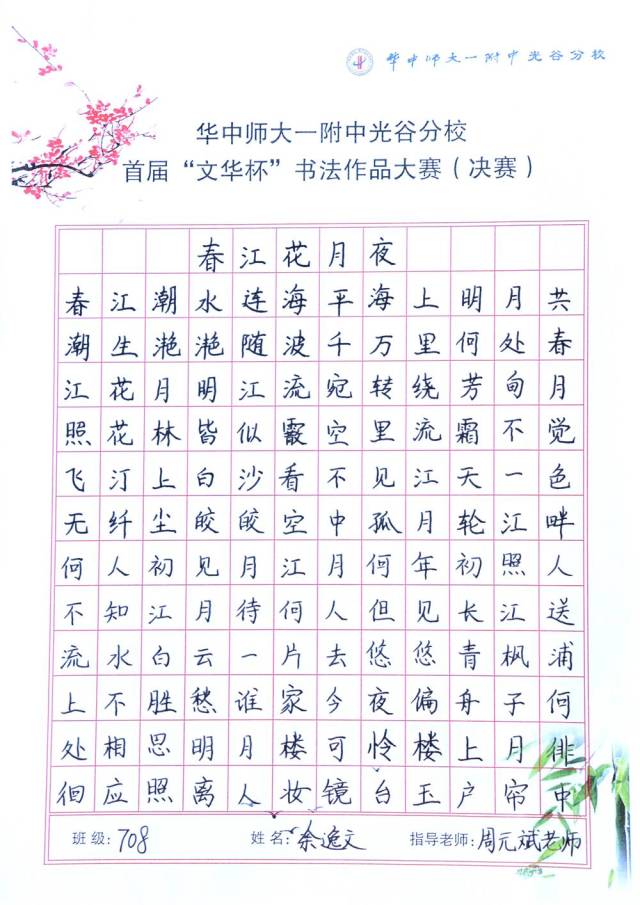 华中师大一附中光谷分校
华中师大一附中光谷分校
首届“文华杯”书法作品大赛（决赛）
春江花月夜
春江潮水连海平海上明月共
潮生滟滟随波千万里何处春
江花月明江流宛转绕芳甸月
照花林皆似霰空里流霜不觉
飞汀上白沙看不见江天一色
无纤尘皎皎空中孤月轮江畔
何人初见月江月何年初照人
不知江月待何人但见长江送
流水白云一片去悠悠青枫浦
上不胜愁谁家今夜偏舟子何
处相思明月楼可怜楼上月徘
徊应照离人妆镜台玉户帘中
班级：708 姓名：余逸文 指导老师：周元斌老师